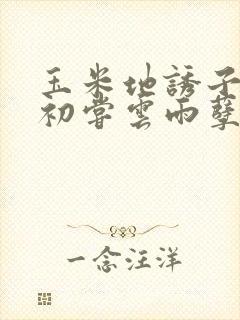 玉米地誘子
初嘗雲雨孽
一念汪洋